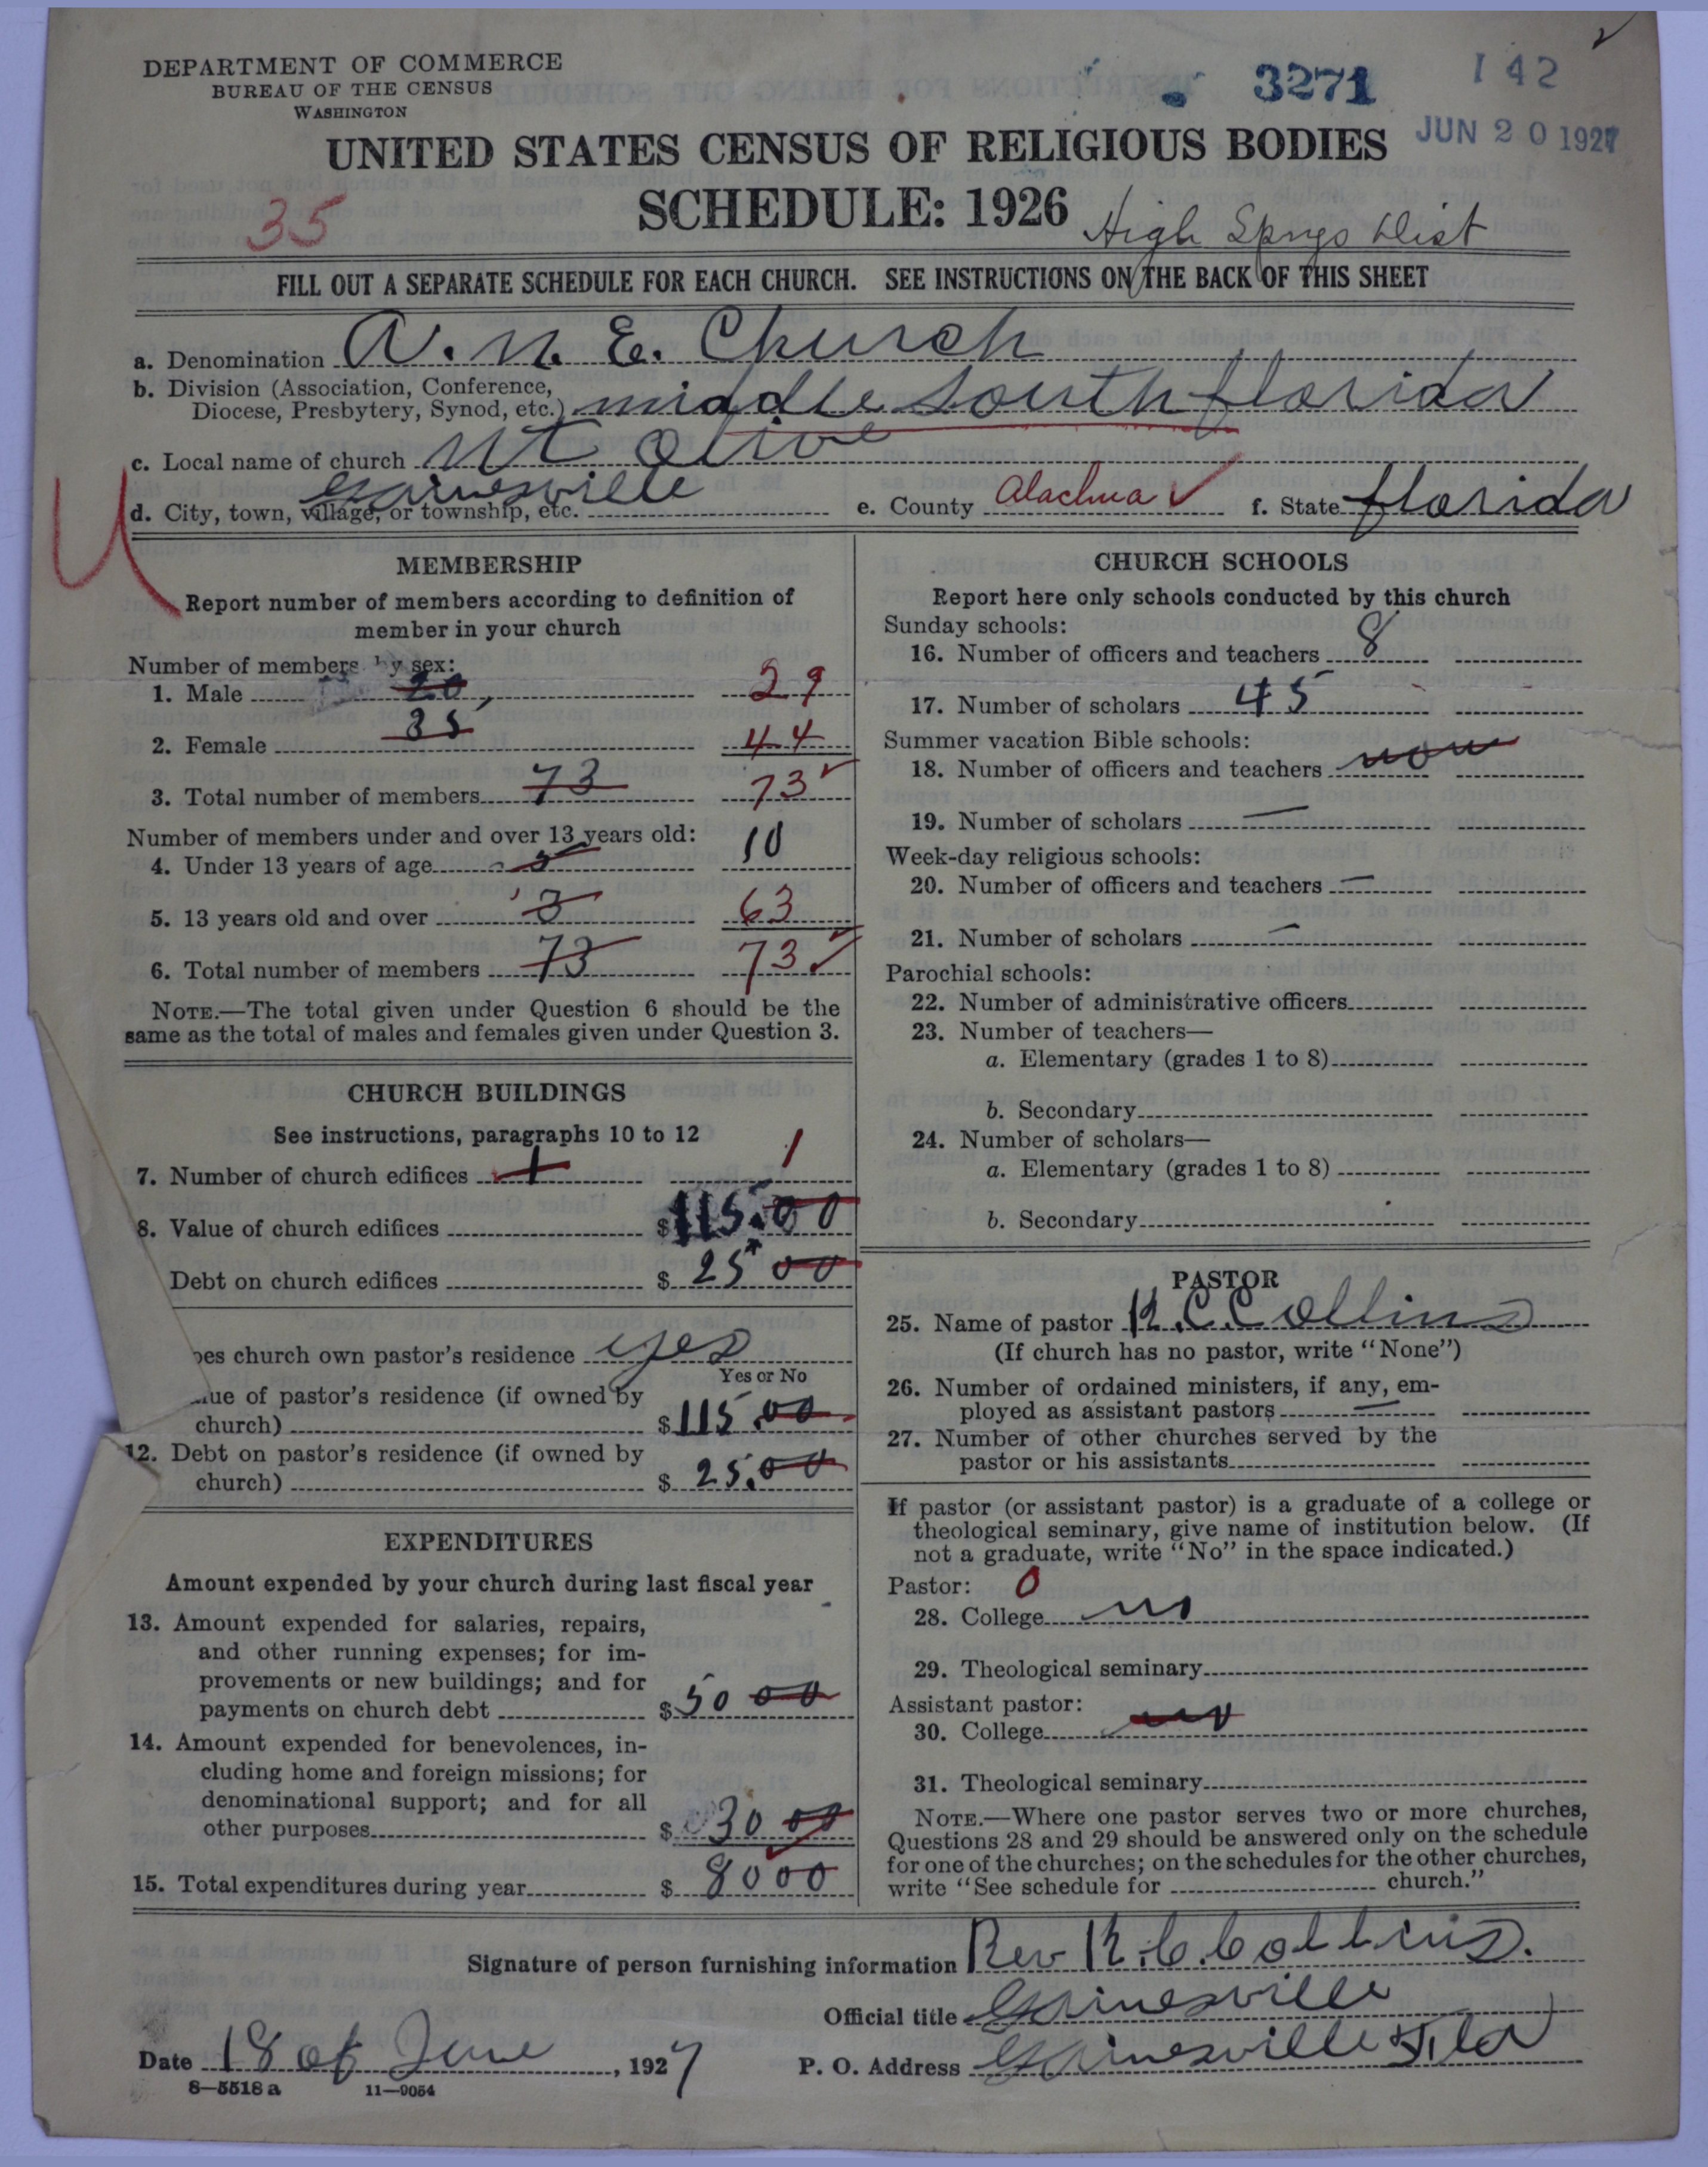 DEPARTMENT OF COMMERCE
BUREAU OF THE CENSUS
WASHINGTON
3271
142
JUN 20 1927
UNITED STATES CENSUS OF RELIGIOUS BODIES
SCHEDULE: 1926
35
High Spngs Dist
FILL OUT A SEPARATE SCHEDULE FOR EACH CHURCH. SEE INSTRUCTIONS ON THE BACK OF THIS SHEET
a. Denomination A. M. E. Church
b. Division (Association, Conference,
Diocese, Presbytery, Synod, etc.) middle South florida
c. Local name of church Mt olive
d. City, town, village, or township, etc. Gainesville e. County Alachua ✓ f. State florida
MEMBERSHIP
Report number of members according to definition of
member in your church
Number of members by sex:
1. Male 20 29
2. Female 35 44
3. Total number of members 73 73 ✓
Number of members under and over 13 years old:
4. Under 13 years of age 10
5. 13 years old and over 63
6. Total number of members 73 73 ✓
NOTE.—The total given under Question 6 should be the
same as the total of males and females given under Question 3.
CHURCH BUILDINGS
See instructions, paragraphs 10 to 12
7. Number of church edifices 1 1
8. Value of church edifices $ 115.00
Debt on church edifices $ 25 00
oes church own pastor's residence yes
Yes or No
ue of pastor's residence (if owned by
church) $ 115.00
12. Debt on pastor's residence (if owned by
church) $ 25.00
EXPENDITURES
Amount expended by your church during last fiscal year
13. Amount expended for salaries, repairs,
and other running expenses; for im-
provements or new buildings; and for
payments on church debt $ 50 00
14. Amount expended for benevolences, in-
cluding home and foreign missions; for
denominational support; and for all
other purposes $ 30 00
15. Total expenditures during year $ 80 00
CHURCH SCHOOLS
Report here only schools conducted by this church
Sunday schools:
16. Number of officers and teachers 8
17. Number of scholars 45
Summer vacation Bible schools:
18. Number of officers and teachers non
19. Number of scholars —
Week-day religious schools:
20. Number of officers and teachers —
21. Number of scholars —
Parochial schools:
22. Number of administrative officers
23. Number of teachers—
a. Elementary (grades 1 to 8)
b. Secondary
24. Number of scholars—
a. Elementary (grades 1 to 8)
b. Secondary
PASTOR
25. Name of pastor R. C. Collins
(If church has no pastor, write "None")
26. Number of ordained ministers, if any, em-
ployed as assistant pastors —
27. Number of other churches served by the
pastor or his assistants
If pastor (or assistant pastor) is a graduate of a college or
theological seminary, give name of institution below. (If
not a graduate, write "No" in the space indicated.)
Pastor: 0
28. College no
29. Theological seminary
Assistant pastor:
30. College no
31. Theological seminary
NOTE.—Where one pastor serves two or more churches,
Questions 28 and 29 should be answered only on the schedule
for one of the churches; on the schedules for the other churches,
write "See schedule for church."
Signature of person furnishing information Rev R. C. Collins.
Official title Gainesville
Date 18 of June, 1927 P. O. Address Gainesville Fla
8—5518 a 11—9054